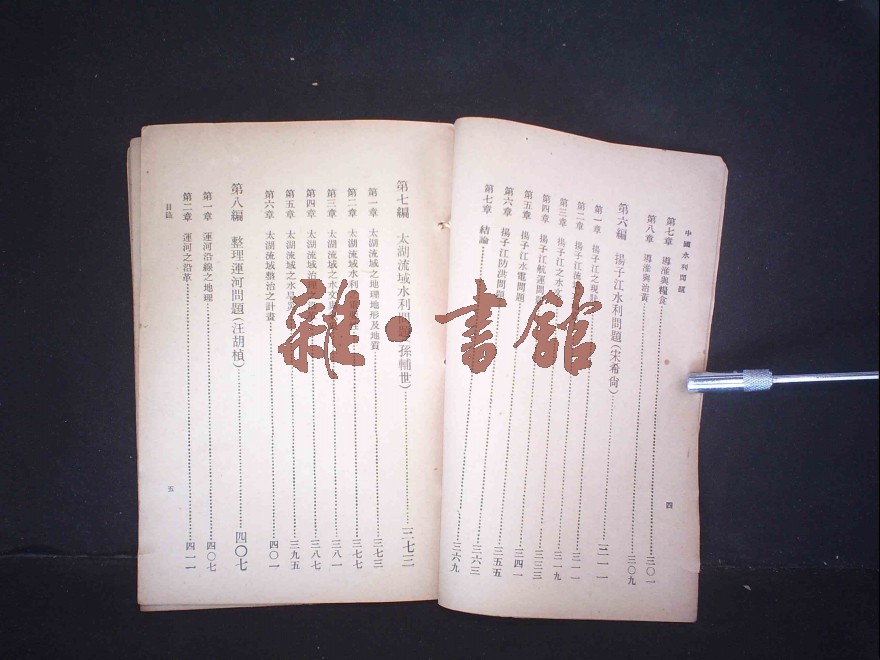 中國水利問題
第七章 導淮與糧食 三〇一
第八章 導淮與治黃 三〇九
第六編 揚子江水利問題(宋希尙) 三一一
第一章 揚子江之現狀 三一一
第二章 揚子江流
第三章 揚子江之水文 三一九
第四章 揚子江航運問題 三三三
第五章 揚子江水電問題 三四一
第六章 揚子江防洪問題 三五五
第七章 結論 三六三
三六九
四
第七編 太湖流域水利問題(孫輔世) 三七三
第一章 太湖流域之地理地形及地質 三七三
第二章 太湖流域水利之 三七七
第三章 太湖流域之水文 三八一
第四章 太湖流域治理之 三八七
第五章 太湖流域之水 三九五
第六章 太湖流域整治之計畫 四〇一
第八編 整理運河問題(汪胡楨) 四〇七
第一章 運河沿線之地理 四〇七
第二章 運河之沿革 四一一
目錄
五
雜·書館